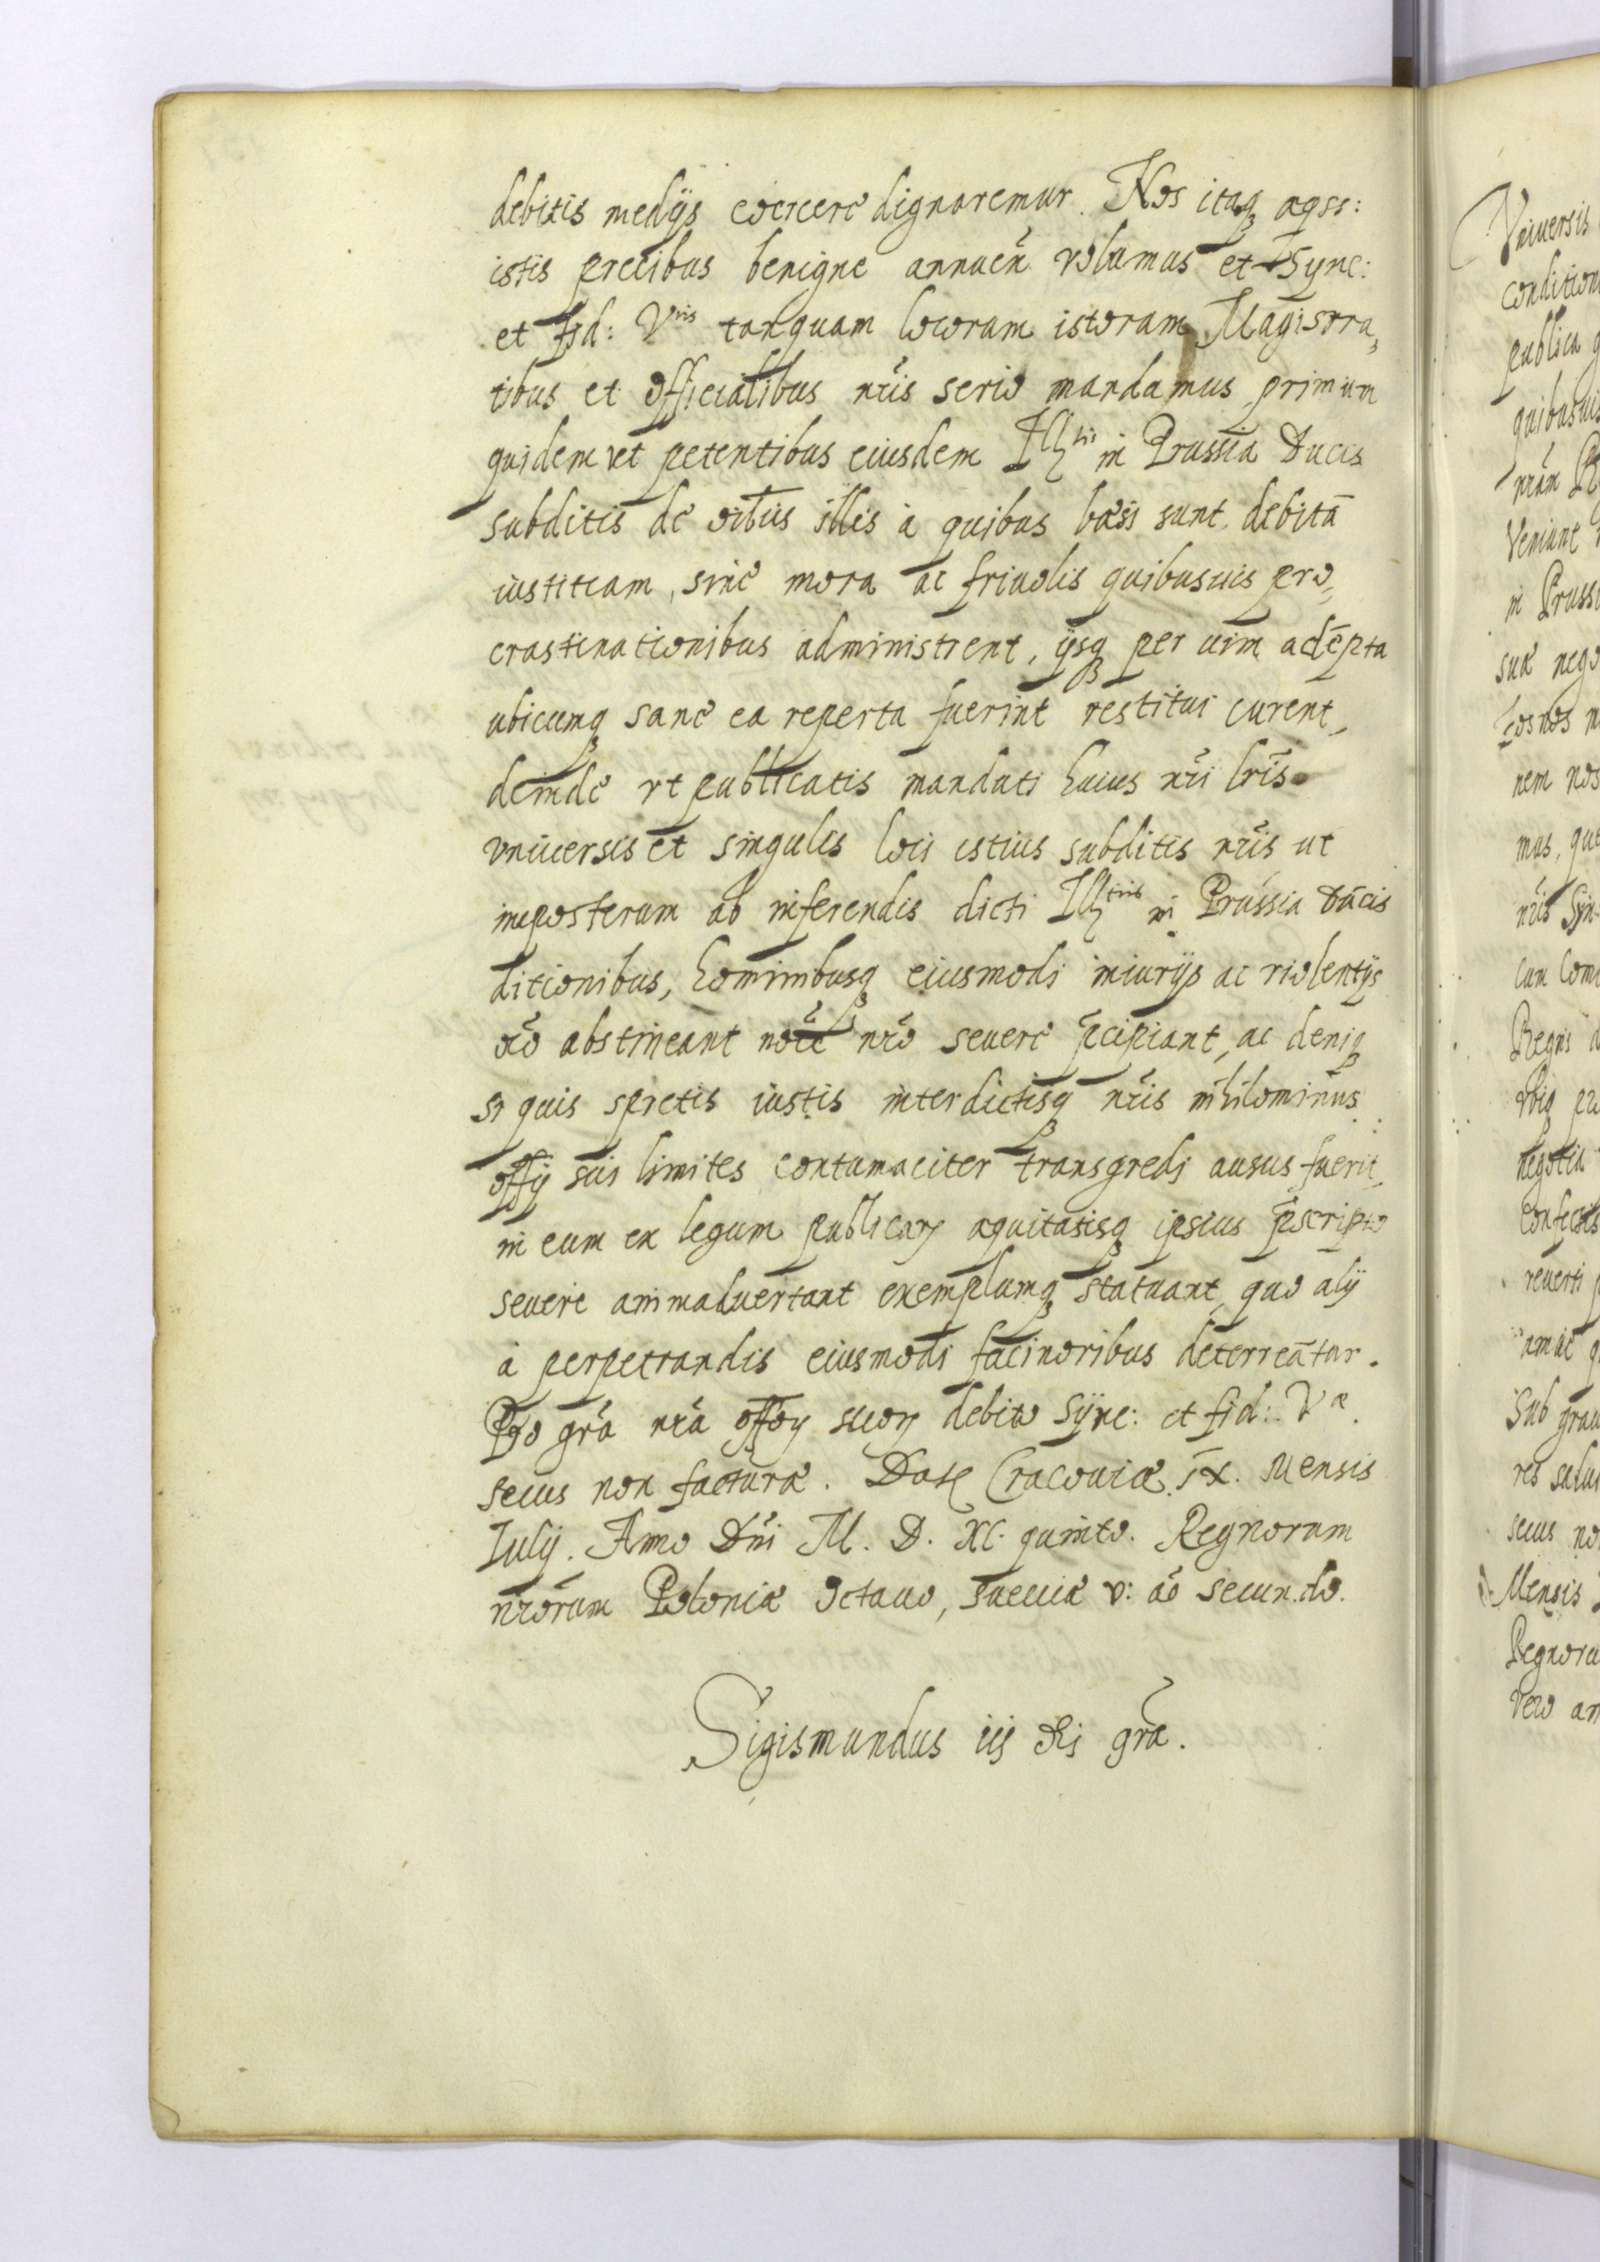 debitis medijs coercere dignaremur. Nos itaq̃ æqss:
istis precibus benigne annuen̄ volumus et Sync:
et fid: Vris tanquam locorum istorum Magistra,
tibus et officialibus nr̄is serio mandamus primum
quidem vt petentibus eiusdem Illtis in Prussia Ducis
subditis de oībus illis à quibus læsi sunt debitā
iustitiam, sine mora ac friuolis quibusuis pro,
crastinationibus administrent, ijsq̃ per uim adēpta
ubicumq̃ sane ea reperta fuerint restitui curent,
deinde vt publicatis mandati huius nr̄i lr̄is
vniuersis et singulis loci istius subditis nr̄is ut
inposterum ab inferendis dicti Illtris in Prussia Ducis
ditionibus, hominibusq̃ eiusmodi iniurijs ac violentijs
oīo abstineant noīe nr̄o seuere p̄cipiant, ac deniq̃
si quis spretis iustis interdictisq̃ nr̄is nihilominus
offij sui limites contumaciter transgredi ausus fuerit,
in eum ex legum publicaꝝ æquitatisq̃ ipsius p̄scripto
seuere animaduertant exemplumq̃ statuant, quo alij
à perpetrandis eiusmodi facinoribus deterreātur.
Pro gr̄a nr̄a offoꝝ suoꝝ debito Sync: et fid: Væ.
secus non facturæ. Datꝭ Cracouiæ IX. Mensis
Iulij. Anno Dn̄i M. D. XC. quinto. Regnorum
nr̄orum Poloniæ Octauo, Sueciæ v: aō secundo.
Sigismundus iij Dei gr̄a.
Vniuersis
condition
publica
quibusuis
nr̄am
Veniunt
in Prussi
suæ nego
nem nos
mus,
nr̄is Syn
cum
Regni
vbiq̃
negotia
confectis
reuerti
Sub grau
secus no
Mensis
Regnoru
vero an